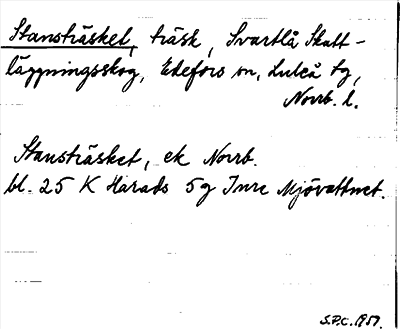 Stansträsket, träsk, Svartlå Skatt-
läggningsskog, Edefors sn, Luleå tg,
Norrb. l.
Stansträsket, ek Norrb.
bl. 25 K Harads 5g Inre Mjövattnet.
S.P.C. 1957.